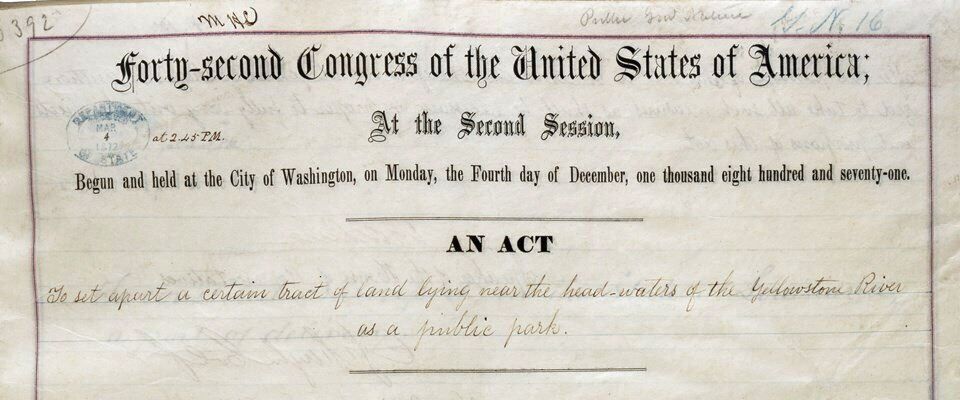 392
Public
G. N. 16
Forty-second Congress of the United States of America;
At the Second Session,
DEPARTMENT
MAR
4
1872
OF STATE
at 2.45 P.M.
Begun and held at the City of Washington, on Monday, the Fourth day of December, one thousand eight hundred and seventy-one.
AN ACT
To set apart a certain tract of land lying near the head-waters of the Yellowstone River
as a public park.